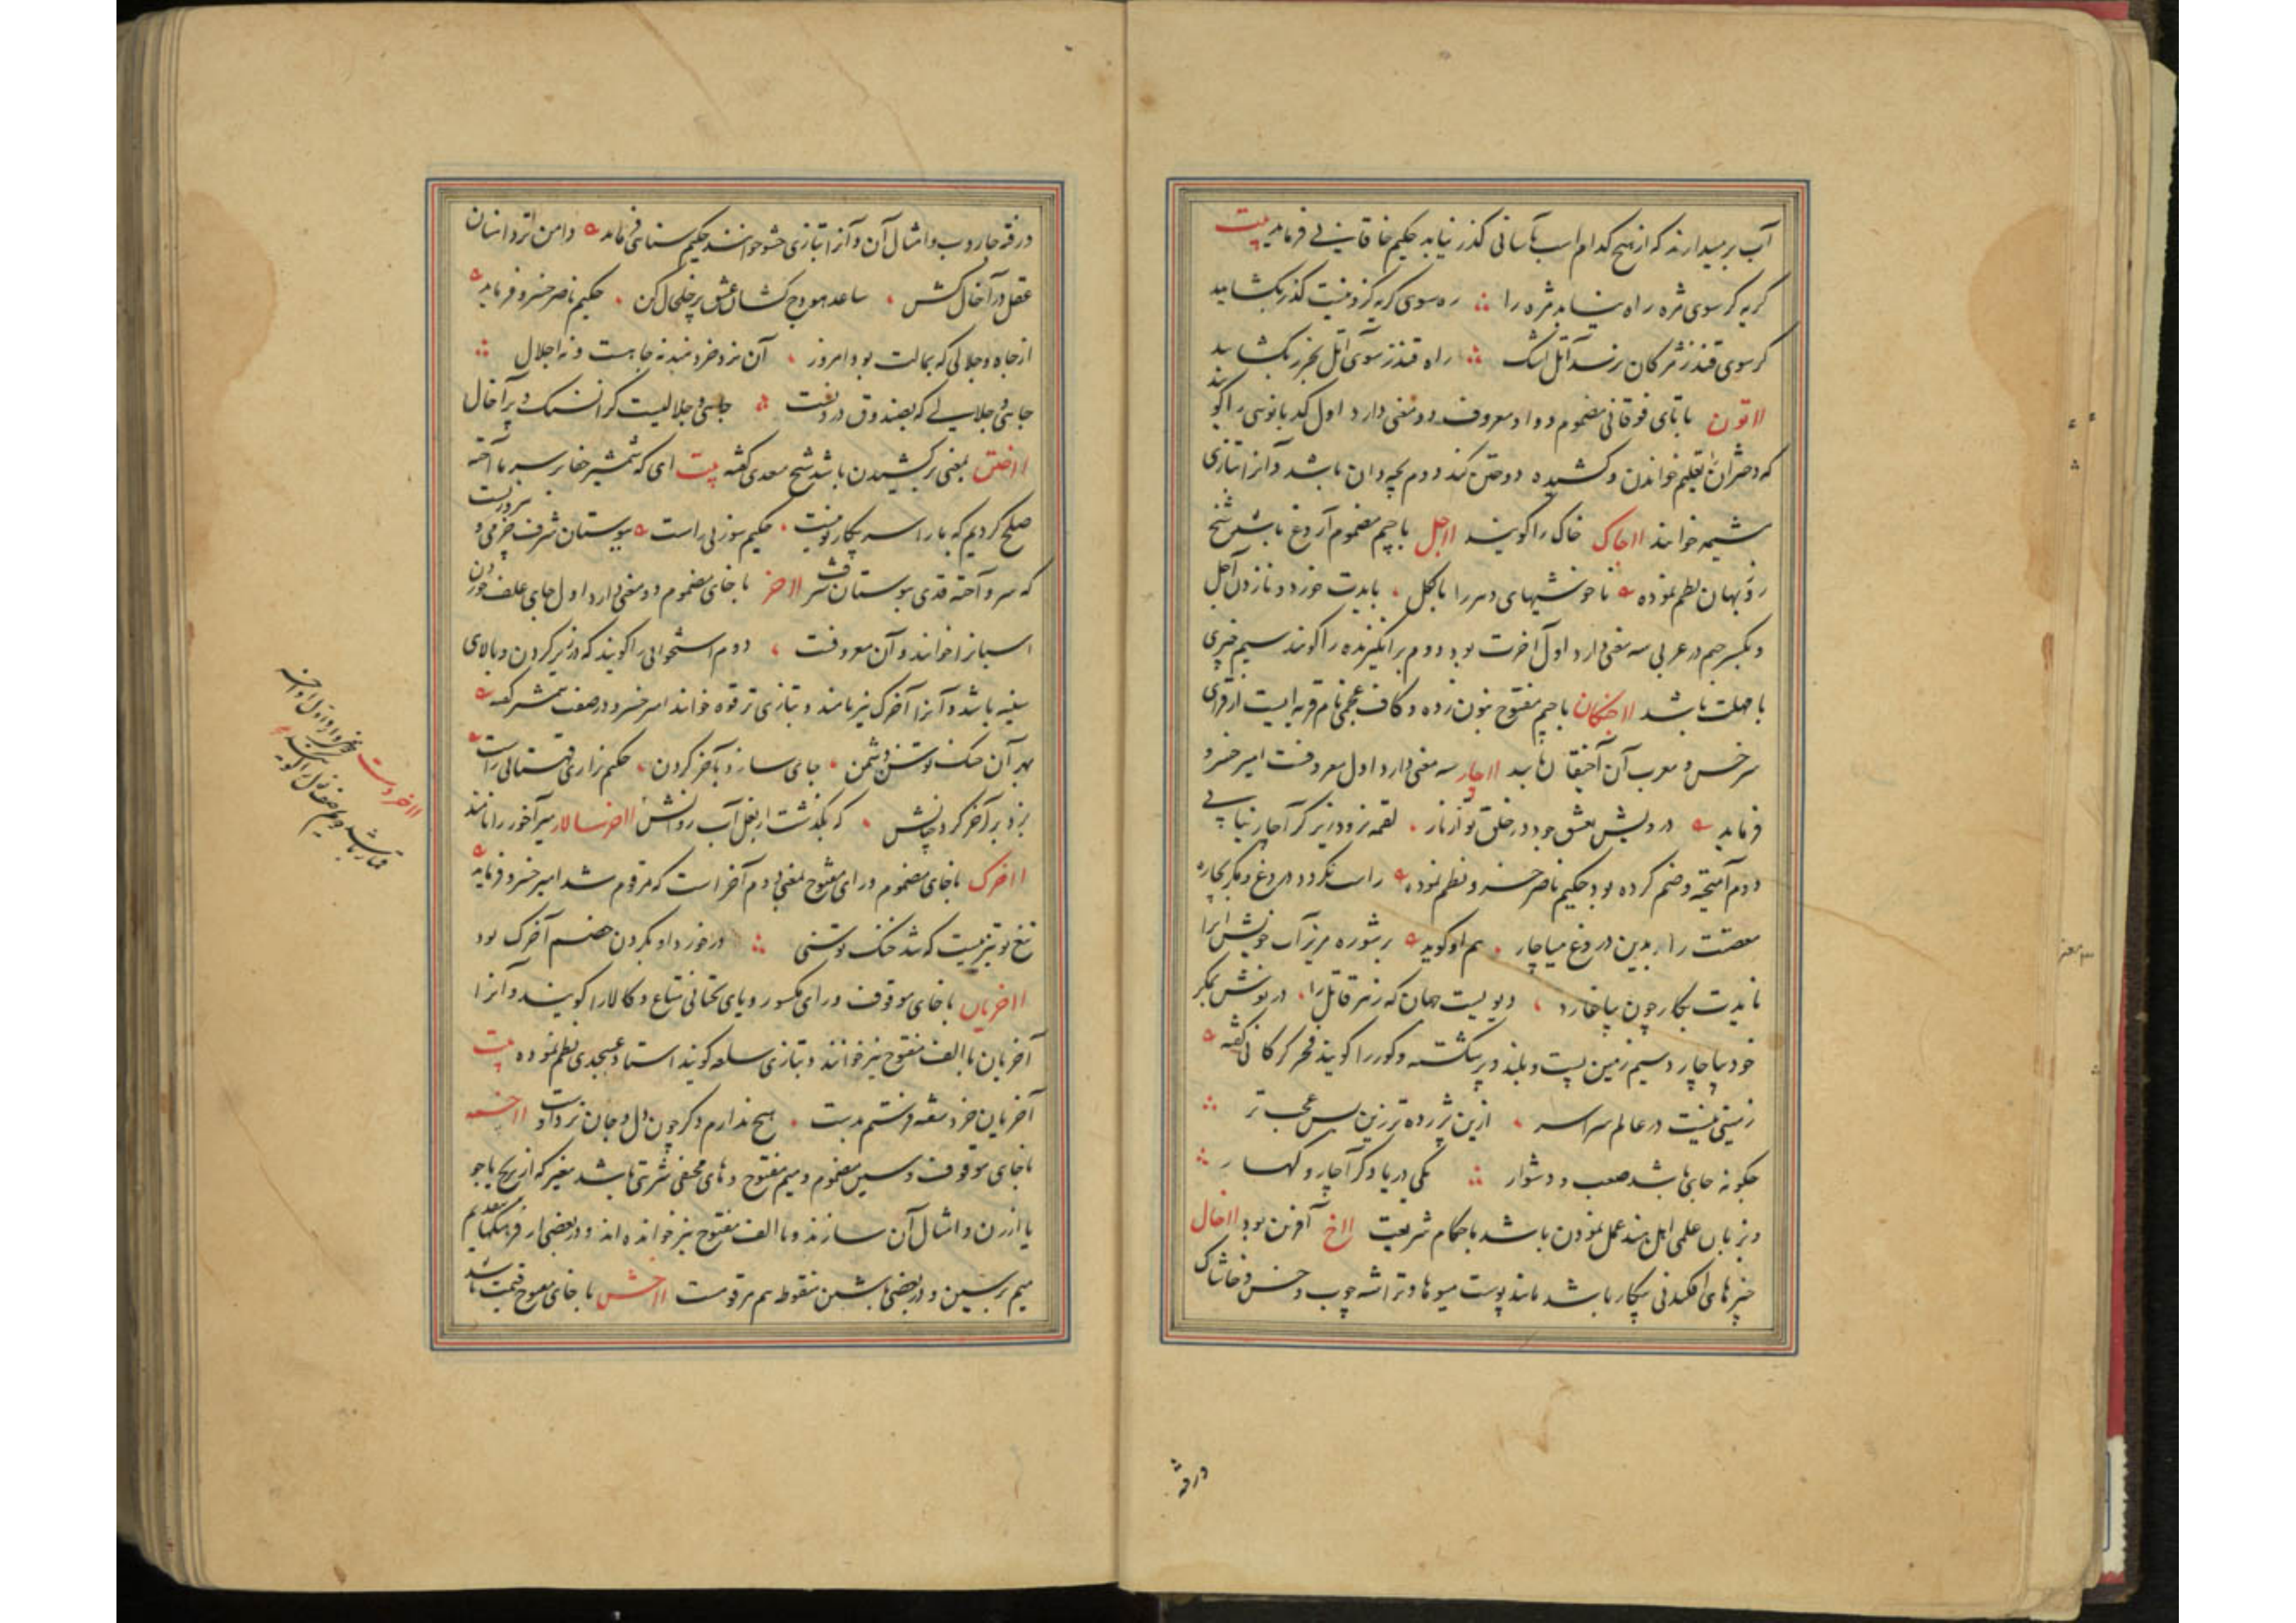 آب برمیدارند که از هیچ کدام اسب بآسانی گذر نیابد حکیم خاقانی فرماید بیت
گریه گر سوی مژه راه نیابد مژه را ره سوی گریه کزو نیست گذر بگشایید
گر سوی قندز مژگان نرسد آتل اشک راه قندز سوی آتل بخزر بگشایید
ااتون با تای فوقانی مضموم و واو معروف دو معنی دارد اول کدبانویی را گویند
که دخترانرا تعلیم خواندن و کشیده دوختن کند و دوم بچه دان باشد و آنرا بتازی
مشیمه خوانند ااجاک خاک را گویند ااجل با جیم مضموم آروغ باشد شیخ
روزبهان نظم نموده ناخوشیهای دهر را بالکل بایدت خورد و نازدن آجل
و بکسر جیم در عربی سه معنی دارد اول آخرت بود دوم برانگیزنده را گویند سیم چیزی
با مهلت باشد ااجنکان با جیم مفتوح بنون زده و کاف عجمی نام قریه ایست از قرای
سرخس و معرب آن آجنقان باشد ااچار سه معنی دارد اول معروفست امیر خسرو
فرماید درویش بعشق جود در خلق تو از ناز لقمه نرود زیر گر آچار نیابی
دوم آمیخته و ضم کرده بود حکیم ناصر خسرو نظم نموده راست نگردد دروغ و مکر بچاره
معصیت را بدین دروغ میاچار هم او گوید بر شوره مریز آب خوش ایرا
ناید بکار چون بیاچارد دیویست جهان که زهر قاتل را در نوش بمکر
خود بیاچارد سیم زمین پست و بلند و پر پشته و کور را گویند فخر گرگانی گفته
زمینی نیست در عالم سراسر ازین پژمرده تر زین بس عجب تر
چگونه جایی باشد صعب و دشوار یکی دریا و گر آچار و کهسار
و بزبان علمی اهل هند عمل نمودن باشد باحکام شریعت ااخ آفرین بود ااخال
چیزهای افکندنی بیکار باشد مانند پوست میوها و تراشه چوب و خس و خاشاک
درقه
درقه جاروب و امثال آن و آنرا بتازی حشو خوانند حکیم سنایی فرماید دامن تردامنان
عقل در آخال کش ساعد هودج کشان عشق پر خلخال کن حکیم ناصر خسرو فرماید
از جاه و جلالی که بمالت بود امروز آن نزد خردمند نه جاهست و نه اجلال
جاهی و جلالی که بصندوق درونست جاهی و جلالیست گرانسنگ و پر آخال
ااختن بمعنی برکشیدن باشد شیخ سعدی گفته بیت ای که شمشیر جفا بر سر ما آخته
صلح کردیم که ما را سر پیکار تو نیست حکیم سوزنی راست ببوستان شرف خرمی و نزهت
که سرو آخته قدی ببوستان شرف ااخر با خای مضموم دو معنی دارد اول جای علف خوردن
اسبانرا خوانند و آن معروفست دوم استخوانی را گویند که در زیر گردن و بالای
سینه باشد و آنرا آخرک نیز نامند و بتازی ترقوه خوانند امیر خسرو در صفت شمشیر گفته
بهر آن خنک توسن دشمن جای سازد بآخر گردن حکیم نزاری قهستانی راست
بزد بر آخر گردچانش که بگذشت از بغل آب روانش ااخرسالار میرآخور را نامند
ااخرک با خای مضموم و رای مفتوح بمعنی دوم آخر است که مرقوم شد امیر خسرو فرماید
تیغ تو تیزیست که شد خنک توسنی درخورد او بگردن خصم آخرک بود
ااخریان با خای موقوف و رای مکسور و یای تحتانی متاع و کالا را گویند و آنرا
اخریان با الف مفتوح نیز خوانند و بتازی سلعه گویند استاد عسجدی نظم نموده بیت
آخریان خرد سفته فرستم بدوست هیچ ندارم دگر چون دل و جان نزد اوست ااخسمه
با خای موقوف و سین مضموم و میم مفتوح و های مخفی شربتی باشد مغیر که از برنج یا جو
یا ارزن و امثال آن سازند و با الف مفتوح نیز خوانده اند و در بعضی از فرهنگها بتقدیم
میم بر سین و در بعضی با شین منقوط هم مرقومست ااخش با خای مفتوح قیمت باشد
ااخردست